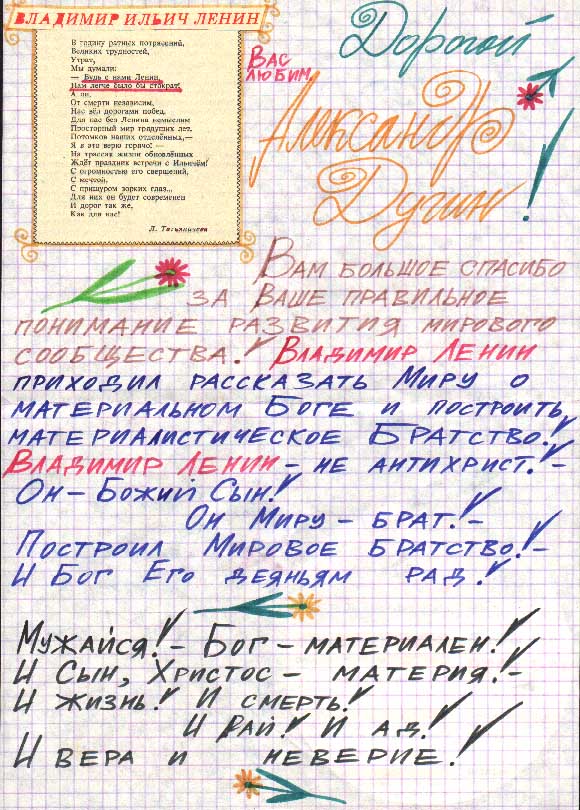 ВЛАДИМИР ИЛЬИЧ ЛЕНИН
В годину ратных потрясений,
Великих трудностей,
Утрат,
Мы думали:
— Будь с нами Ленин,
Нам легче было бы стократ!
А он,
От смерти независим,
Нас вёл дорогами побед.
Для нас без Ленина немыслим
Просторный мир грядущих лет.
Потомков наших отделённых,—
Я в это верю горячо! —
На трассах жизни обновлённых
Ждёт праздник встречи с Ильичём!
С огромностью его свершений,
С мечтой,
С прищуром зорких глаз...
Для них он будет современен
И дорог так же,
Как для нас!
Л. Татьяничева
Вас
любим,
Дорогой
Александр
Дугин!
Вам большое спасибо
за Ваше правильное
понимание развития мирового
сообщества! Владимир Ленин
приходил рассказать Миру о
материальном Боге и построить
материалистическое Братство!
Владимир Ленин – не антихрист! –
Он – Божий Сын!
Он Миру – брат! –
Построил Мировое братство! –
И Бог Его деяньям рад!
Мужайся! – Бог – материален!
И Сын, Христос – материя! –
И жизнь! И смерть!
И рай! И ад!
И вера и неверие!